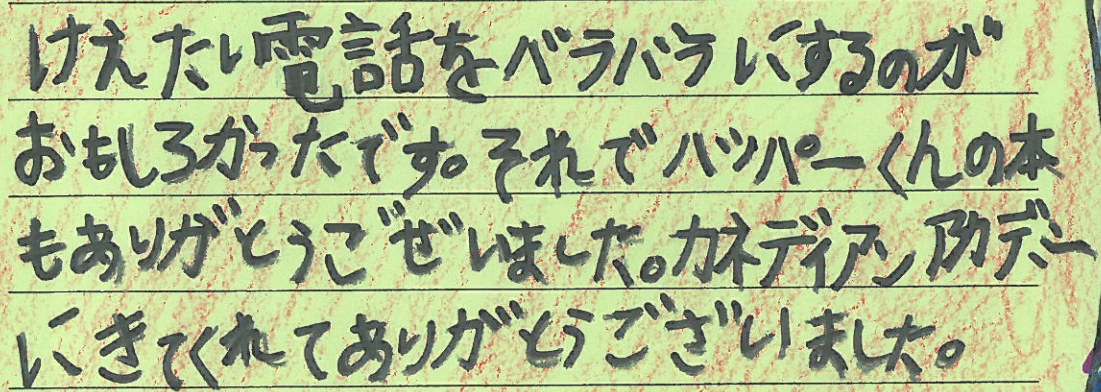 けえたい電話をバラバラにするのが
おもしろかったです。それでハッパーくんの本
もありがとうごぜいました。カネディアンアカデミー
にきてくれてありがとうございました。